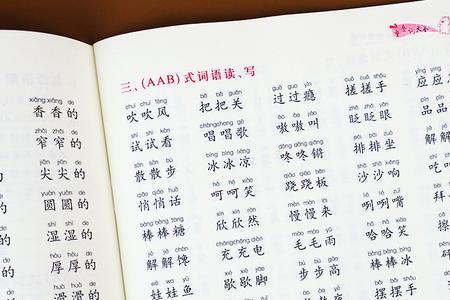 xiāng xiāng de
香香的
zhǎi zhǎi de
窄窄的
jiān jiān de
尖尖的
yuán yuán de
圆圆的
shī shī de
湿湿的
hòu hòu de
厚厚的
huá huá de
滑滑的
三、(AAB)式词语读、写
chuī chuī fēng
吹吹风
shì shì kàn
试试看
sàn sàn bù
散散步
qiāo qiāo huà
悄悄话
bàng bàng táng
棒棒糖
jiě jiě chán
解解馋
wá wá yú
娃娃鱼
bǎ bǎ guān
把把关
chàng chàng gē
唱唱歌
bīng bīng liáng
冰冰凉
hē hē xiào
呵呵笑
xīn xīn rán
欣欣然
chōng chōng diàn
充充电
xiē xiē jiǎo
歇歇脚
guò guo yǐn
过过瘾
áo áo jiào
嗷嗷叫
dōng dōng qiāng
咚咚锵
qiāo qiāo bǎn
跷跷板
màn màn lái
慢慢来
máo máo yǔ
毛毛雨
bù bù gāo
步步高
cuō cuo shǒu
搓搓手
zhǎ zhǎ yǎn
眨眨眼
pái pái zuò
排排坐
shā shā xiǎng
沙沙响
liě liě zuǐ
咧咧嘴
hā hā xiào
哈哈笑
bàng bàng bīng
棒棒冰
bǎi bǎi shǒu
摆摆手
应应
品品
解解
吃
拜
擦